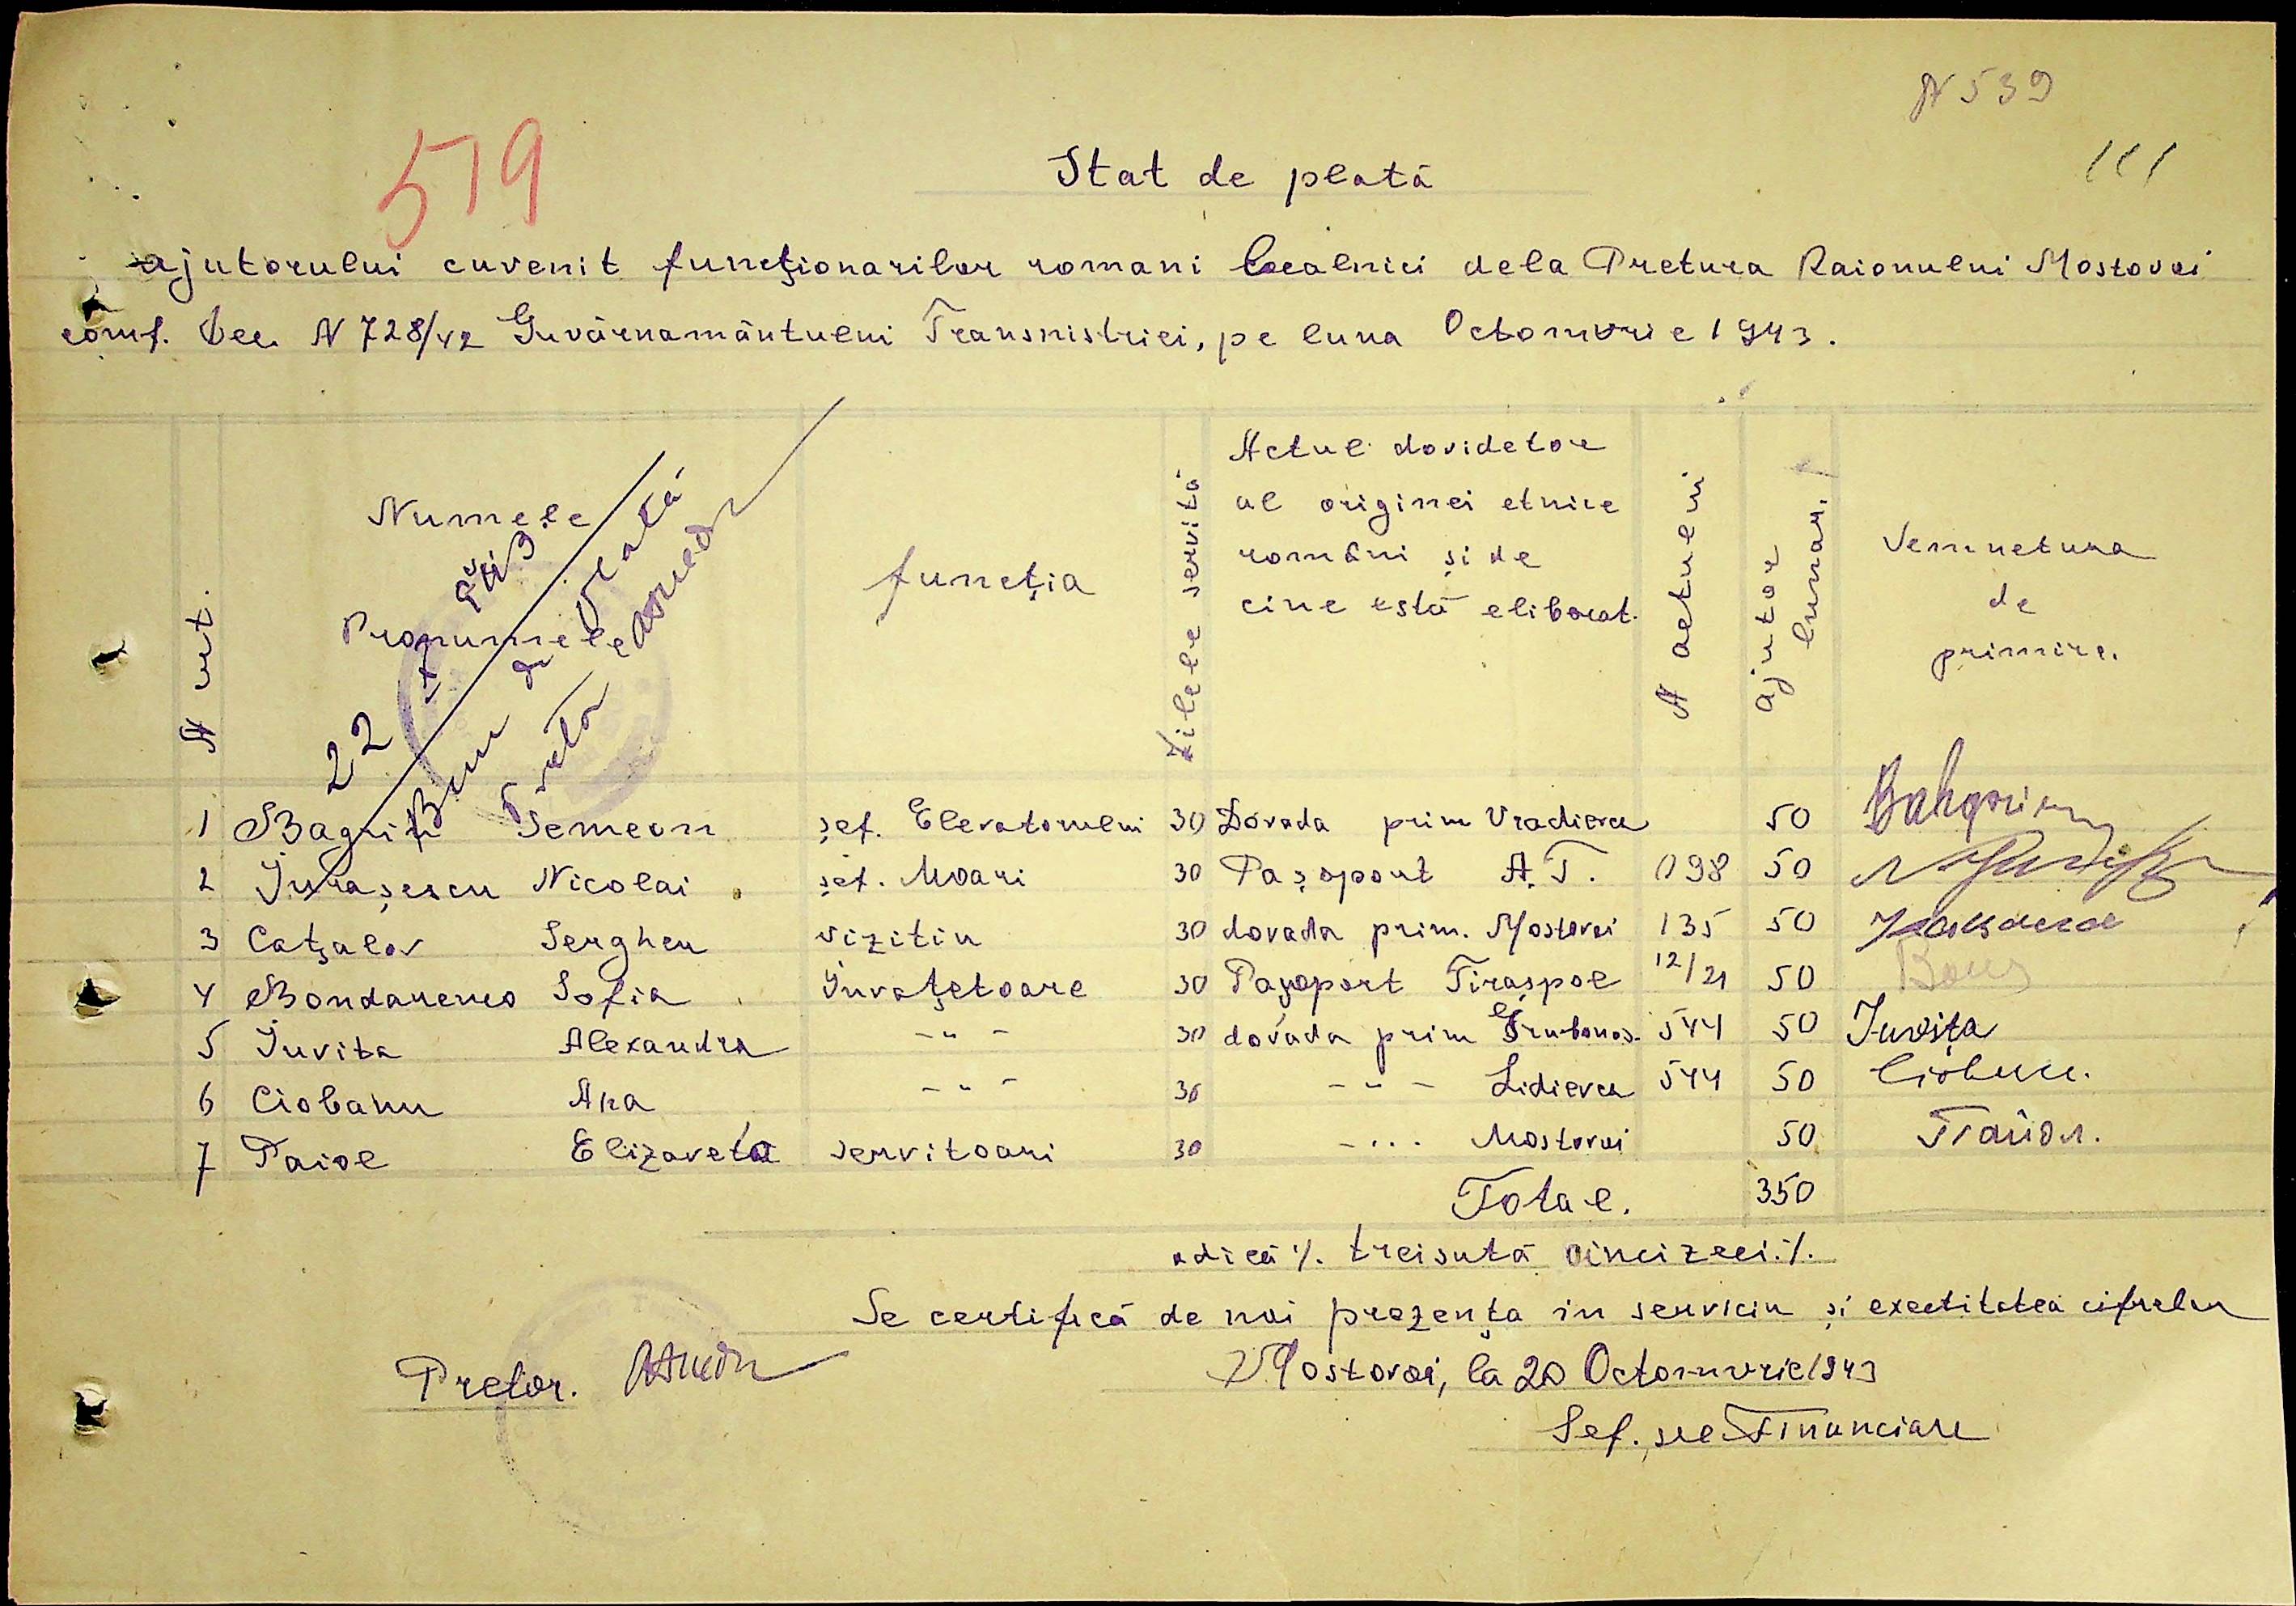 N 539
111
519
Stat de plată
ajutorului cuvenit funcţionarilor romani localnici dela Pretura Raionului Mostovoi
conf. Dec. N 728/42 Guvărnamăntului Transnistriei, pe luna Octomvrie 1943.
N crt.
Numele
Pronumele
funcţia
Zilele servită
Actul dovidetor
al originei etnice
români şi de
cine estă eliborat.
N actului
Ajutor
lunar.
Semnetura
de
primire.
22
Bun de plată
Pretor
1 Semeon şef. Elevatorului 30 Dovada prim Vradievca 50
2 Juraşescu Nicolai şef. Moari 30 Paşoport A.T. 098 50
3 Caţalov Sergheu vizitiu 30 dovada prim. Mostovoi 135 50
4 Bondarenco Sofia Invaţetoare 30 Paşoport Tiraspol 12/21 50
5 Juvita Alexandra -"- 30 dovada prim 544 50 Juviţa
6 Ciobanu Ana -"- 30 -"- Lidievca 544 50
7 Paiol Elizaveta servitoari 30 -"- Mostovoi 50
Total. 350
adică ٪. treisută cincizeci ٪.
Se certifică de noi prezenţa in serviciu şi exectitatea cifrelor
Mostovoi, la 20 Octomvrie 1943
Pretor.
Sef. sec Financiare